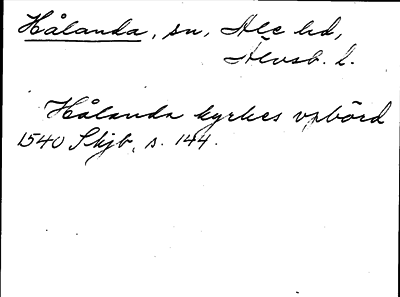 Hålanda, sn, Ale hd,
Älvsb. l.
Hålanda kyrkes vpbörd
1540 Skjb, s. 144.